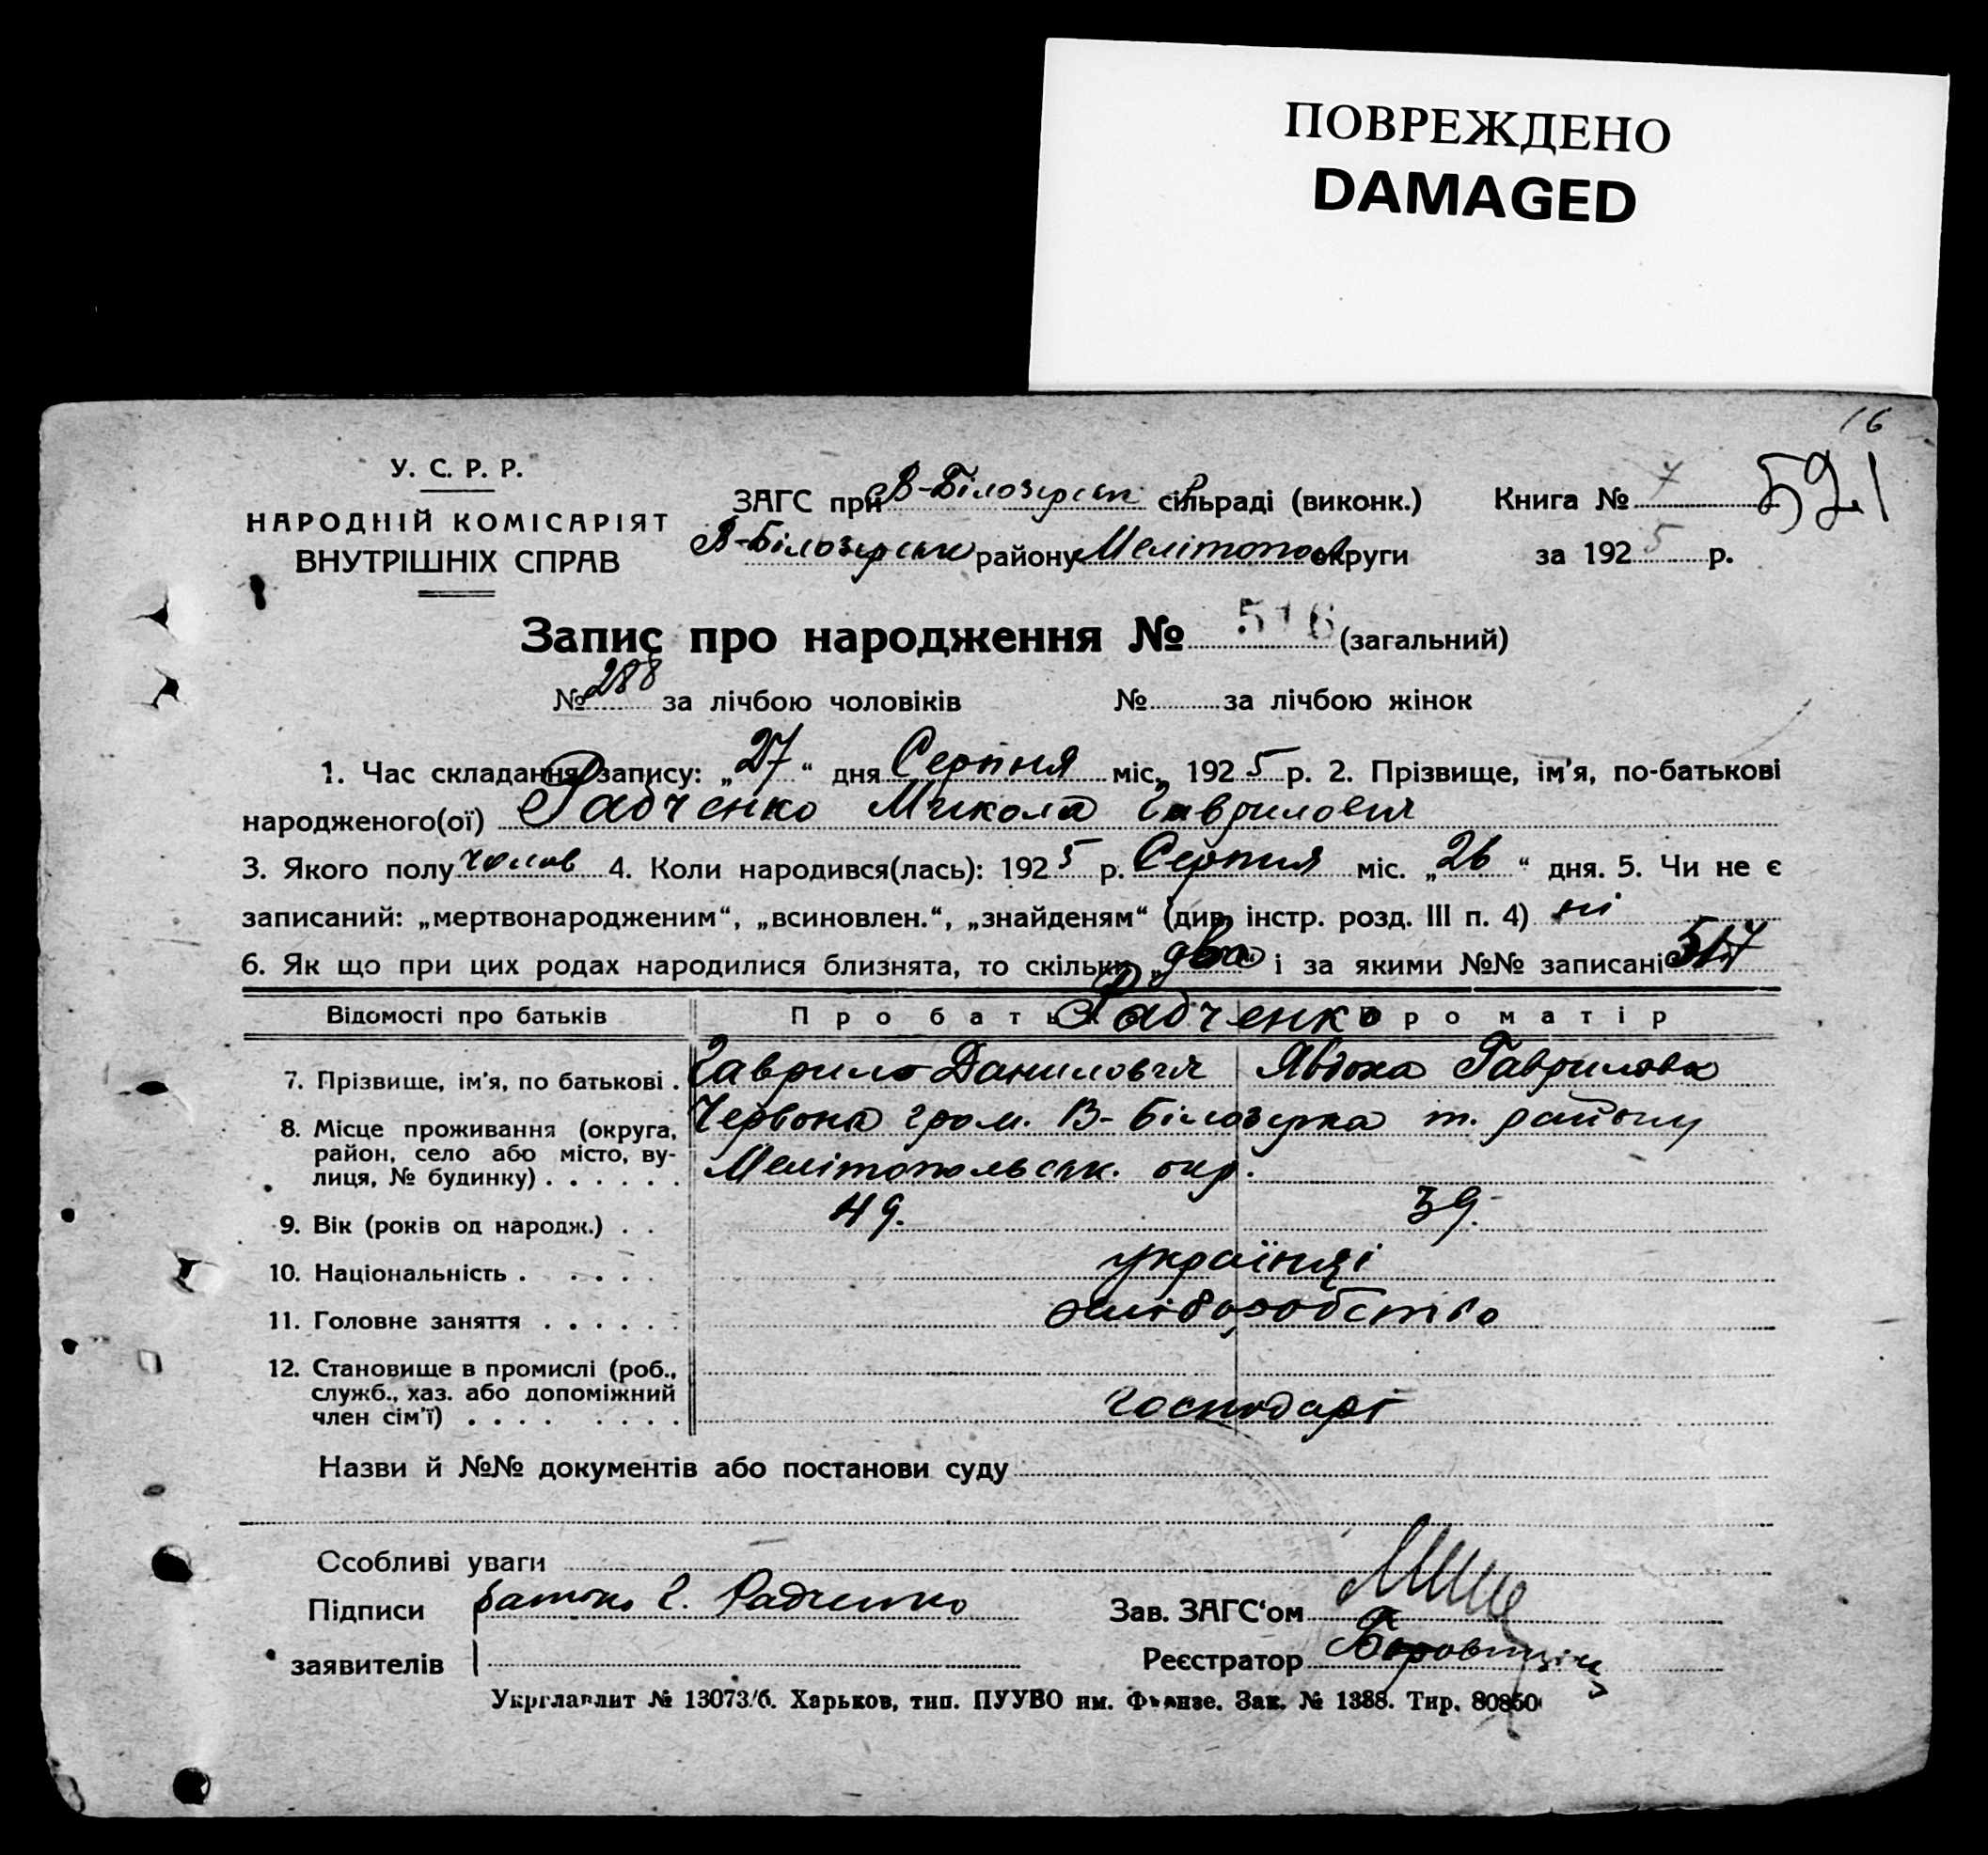 ПОВРЕЖДЕНО
DAMAGED
16
У. С. Р. Р.
НАРОДНІЙ КОМІСАРІЯТ
ВНУТРІШНІХ СПРАВ
ЗАГС при В-Білозерськ сільраді (виконк.)
В-Білозерськ району Мелітопол округи
Книга № 7
521
за 1925 р.
Запис про народження № 516 (загальний)
№ 288 за лічбою чоловіків № за лічбою жінок
1. Час складання запису: „27“ дня Серпня міс. 1925 р. 2. Прізвище, ім'я, по-батькові
народженого(ої) Радченко Микола Гаврилович
3. Якого полу чолов 4. Коли народився(лась): 1925 р. Серпня міс. „26“ дня. 5. Чи не є
записаний: „мертвонародженим“, „всиновлен.“, „знайденям“ (див. інстр. розд. III п. 4) ні
6. Як що при цих родах народилися близнята, то скільки „два і за якими №№ записані 517
Відомості про батьків Про батька Про матір
Радченко
7. Прізвище, ім'я, по батькові . Гаврило Данилович Явдоха Гаврилова
8. Місце проживання (округа, район, село або місто, вулиця, № будинку) . . . . . . Червона гром. В-Білозерка т. району
Мелітопольськ. окр.
9. Вік (років од народж.) . . 49. 39.
10. Національність . . . . . українці
11. Головне заняття . . . . . . хліборобство
12. Становище в промислі (роб.,
служб., хаз. або допоміжний
член сім'ї) . . . . . . . . господарі
Назви й №№ документів або постанови суду
Особливі уваги
Підписи батько Г. Радченко Зав. ЗАГС'ом
заявителів Реєстратор
Укрглавлит № 13073/б. Харьков, тип. ПУУВО им. Фрунзе. Зак. № 1388. Тир. 80850